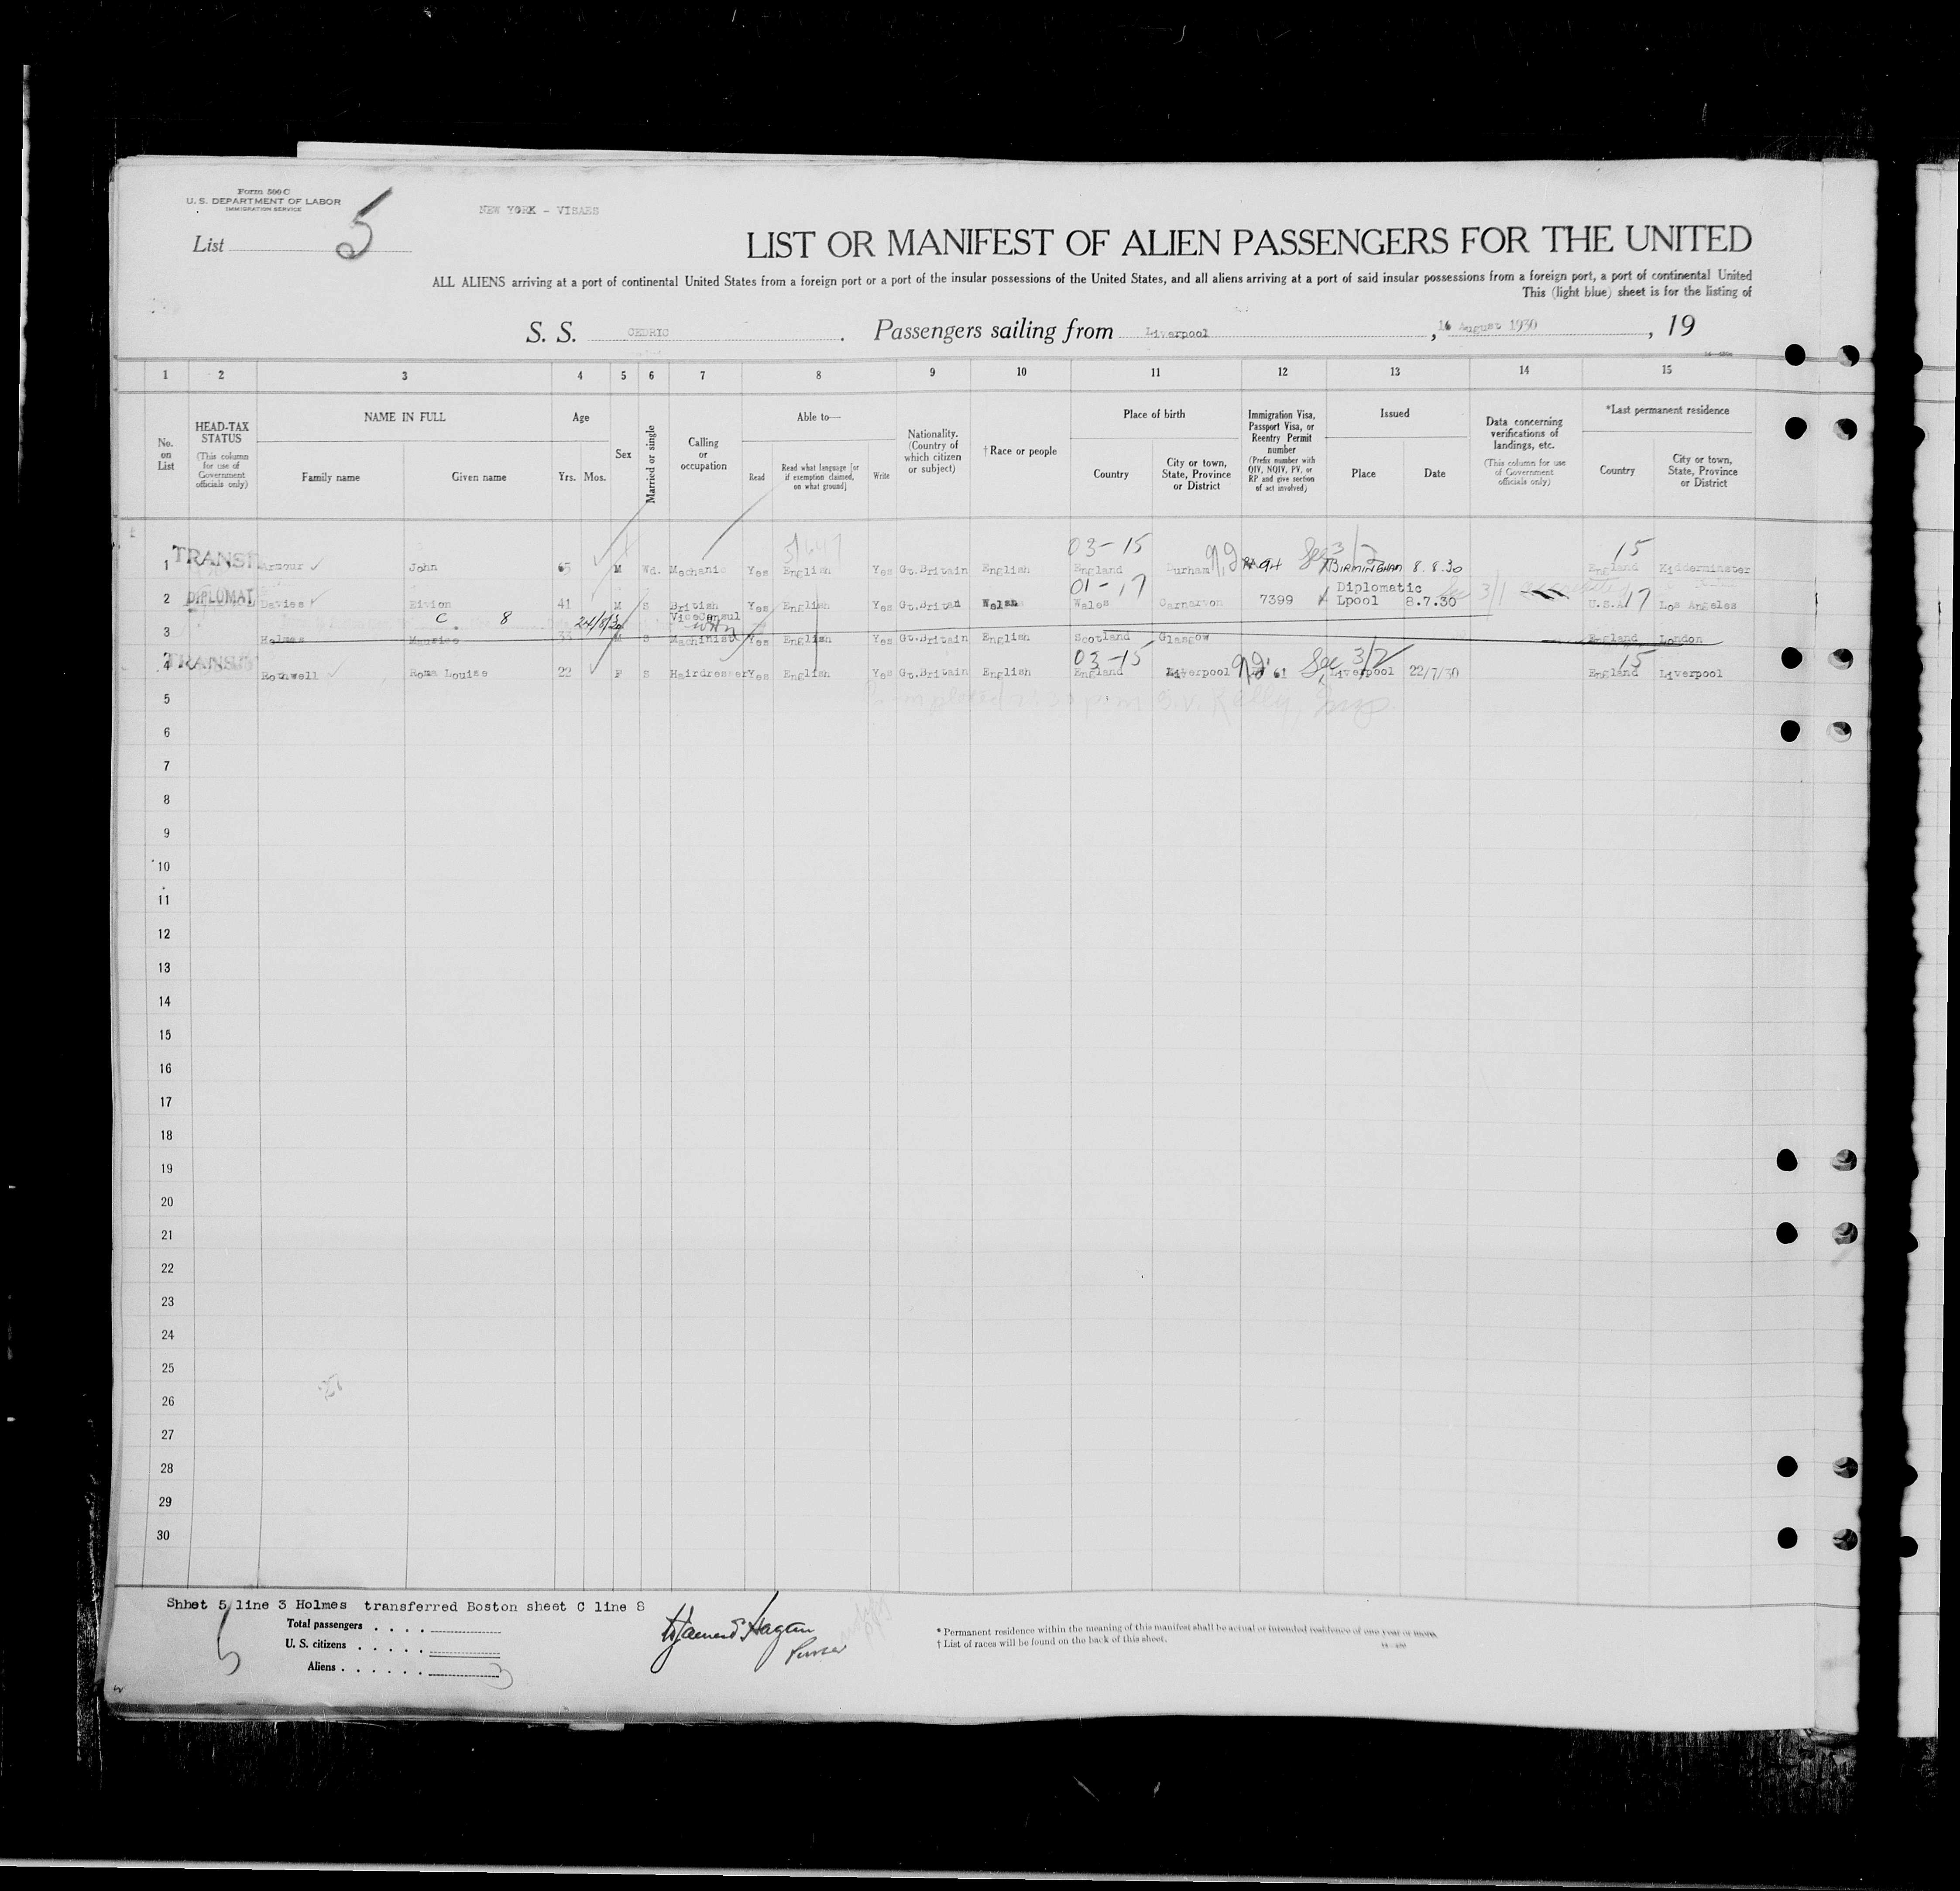 Form 500 C
U. S. DEPARTMENT OF LABOR
IMMIGRATION SERVICE
NEW YORK - VISAES
List 5
LIST OR MANIFEST OF ALIEN PASSENGERS FOR THE UNITED
ALL ALIENS arriving at a port of continental United States from a foreign port or a port of the insular possessions of the United States, and all aliens arriving at a port of said insular possessions from a foreign port, a port of continental United
This (light blue) sheet is for the listing of
S. S. CEDRIC . Passengers sailing from Liverpool , 16 August 1930 , 19
1 2 3 4 5 6 7 8 9 10 11 12 13 14 15
No. on List
HEAD-TAX STATUS (This column for use of Government officials only)
NAME IN FULL
Family name Given name
Age
Yrs. Mos.
Sex
Married or single
Calling or occupation
Able to—
Read Read what language [or if exemption claimed, on what ground] Write
Nationality. (Country of which citizen or subject)
† Race or people
Place of birth
Country City or town, State, Province or District
Immigration Visa, Passport Visa, or Reentry Permit number (Prefix number with QIV, NQIV, PV, or RP and give section of act involved)
Issued
Place Date
Data concerning verifications of landings, etc. (This column for use of Government officials only)
*Last permanent residence
Country City or town, State, Province or District
03-15 Sec 3/2 15
1 TRANSIT Armour John 65 M Wd. Mechanic Yes English Yes Gt.Britain English England Durham 94 BIRMINGHAM 8.8.30 England Kidderminster
01-17 Diplomatic
2 DIPLOMAT Davies Eivion 41 M S British Vice Consul Yes English Yes Gt.Britan Welsh Wales Carnarvon 7399 Lpool 8.7.30 3/1 U.S.A 17 Los Angeles
C 8 24/8/30
3 Holmes Maurice 33 M S Machinist Yes English Yes Gt.Britain English Scotland Glasgow England London
03-15 Sec 3/2 15
4 TRANSIT Rothwell Roma Louise 22 F S Hairdresser Yes English Yes Gt.Britain English England Liverpool 61 Liverpool 22/7/30 England Liverpool
5
6
7
8
9
10
11
12
13
14
15
16
17
18
19
20
21
22
23
24
25
26
27
28
29
30
Shhet 5 line 3 Holmes transferred Boston sheet C line 8
Total passengers . . . .
U. S. citizens . . . . .
Aliens . . . . . . 3
5
Purser
* Permanent residence within the meaning of this manifest shall be actual or intended residence of one year or more.
† List of races will be found on the back of this sheet.